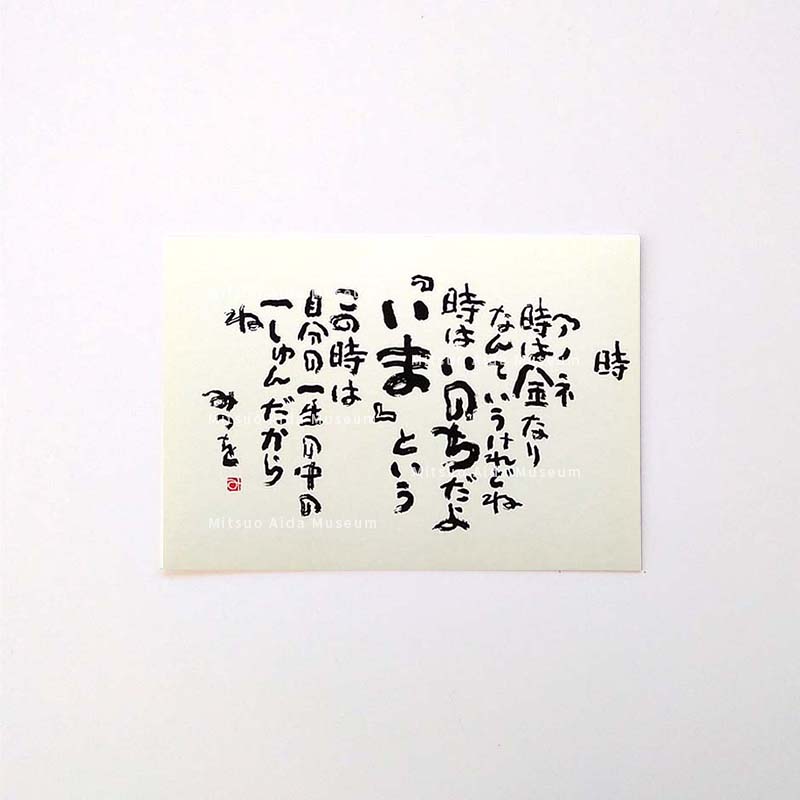 時
アノネ
時は金なり
なんていうけれどね
時はいのちだよ
『いま』という
この時は
自分の一生の中の
一しゅんだから
ね
みつを
Mitsuo Aida Museum
Mitsuo Aida Museum
Mitsuo Aida Museum